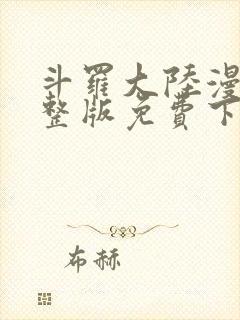 斗羅大陸漫
整版免費下
布赫